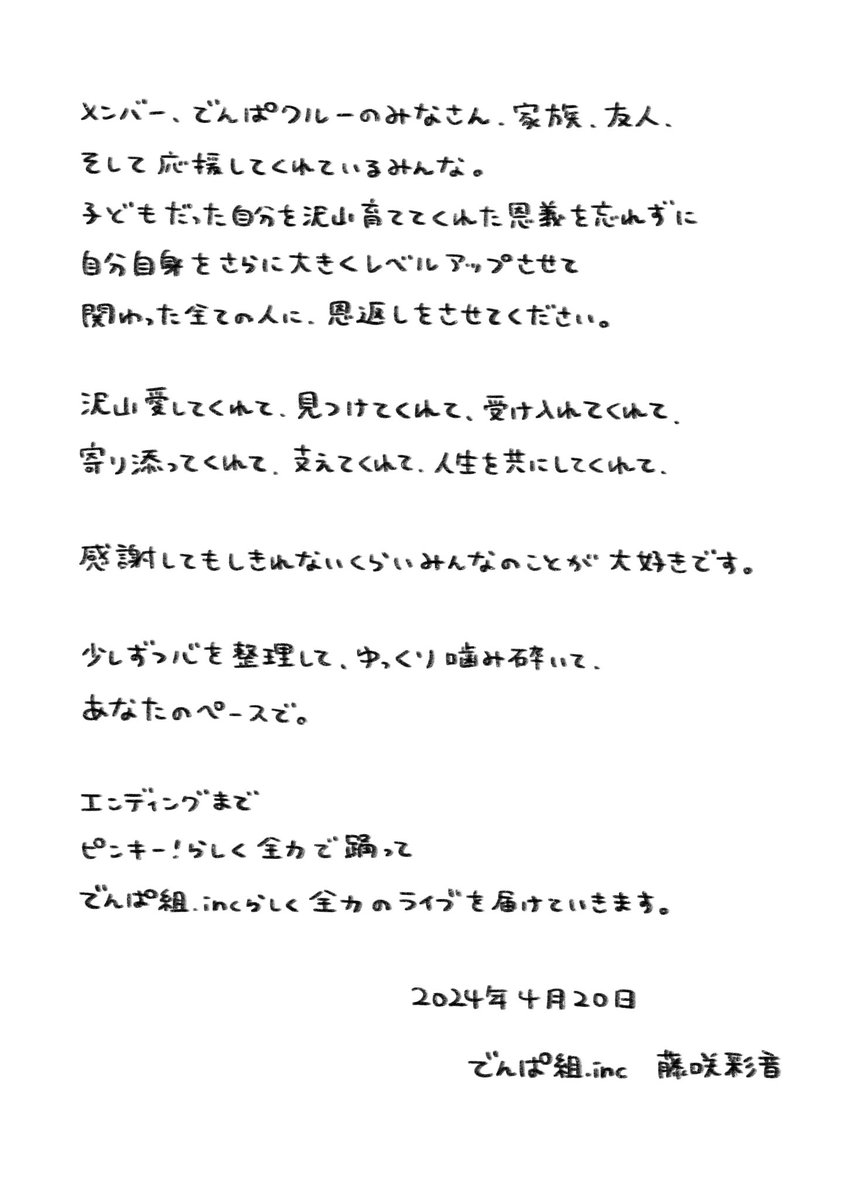 メンバー、でんぱクルーのみなさん、家族、友人、
そして応援してくれているみんな。
子どもだった自分を沢山育ててくれた恩義を忘れずに
自分自身をさらに大きくレベルアップさせて
関わった全ての人に、恩返しをさせてください。
沢山愛してくれて、見つけてくれて、受け入れてくれて、
寄り添ってくれて、支えてくれて、人生を共にしてくれて、
感謝してもしきれないくらいみんなのことが大好きです。
少しずつ心を整理して、ゆっくり噛み砕いて、
あなたのペースで。
エンディングまで
ピンキー!らしく全力で踊って
でんぱ組.incらしく全力のライブを届けていきます。
2024年4月20日
でんぱ組.inc 藤咲彩音